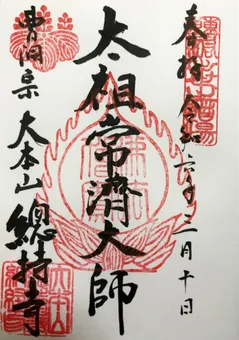 奉拝 令和六年三月十日
太祖常濟大師
曹洞宗 大本山 總持寺